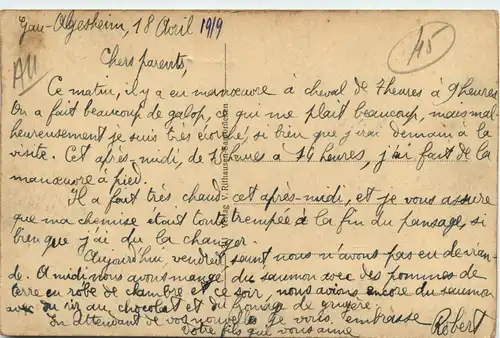 Gau-Algesheim, 18 Avril 1919
45
All
Chers parents,
Ce matin, il y a eu manœuvre à cheval de 7 heures à 9 heures
On a fait beaucoup de galop, ce qui me plait beaucoup, mais mal-
heureusement je suis très écorché, si bien que j'irai demain à la
visite. Cet après-midi, de heures à 16 heures, j'ai fait de la
manœuvre à pied.
Il a fait très chaud cet après-midi, et je vous assure
que ma chemise était toute trempée à la fin du pansage, si
bien que j'ai du la changer.
Aujourd'hui, vendredi saint nous n'avons pas eu de vian-
de. A midi nous avons mangé du saumon avec des pommes de
terre en robe de chambre et ce soir, nous avions encore du saumon
avec du riz au chocolat et du fromage de gruyère.
En attendant de vos nouvelles je vous embrasse
Votre fils qui vous aime Robert
Verlag V. Rithausen,